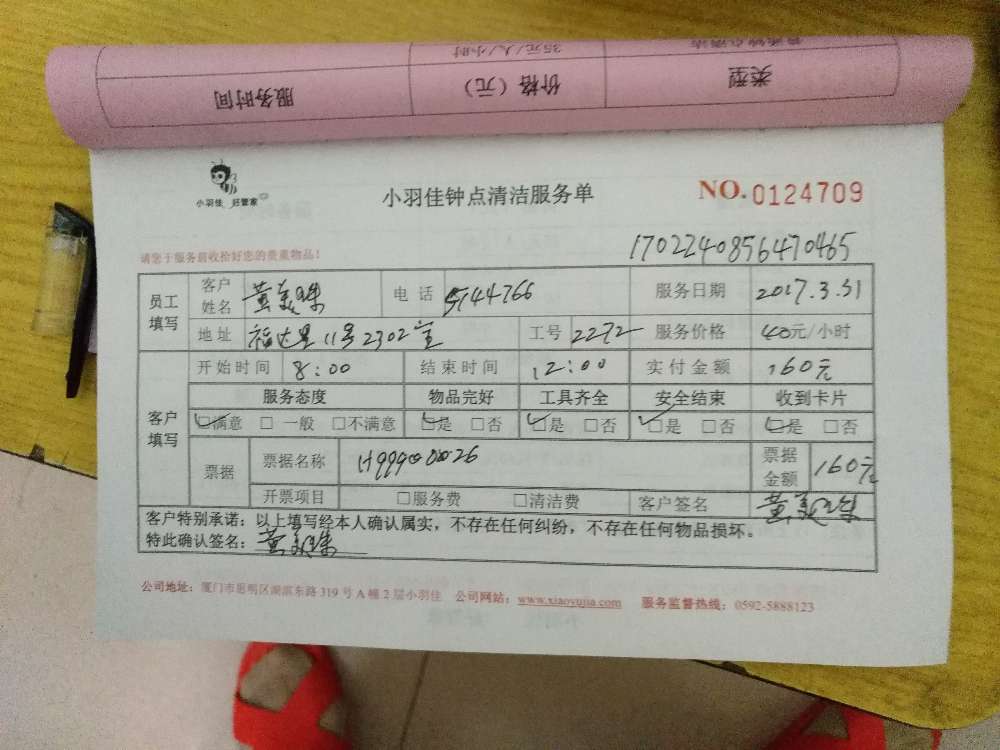 类型 价格（元） 服务时间
35元/人/小时
小羽佳 好管家
小羽佳钟点清洁服务单
NO. 0124709
请您于服务前收拾好您的贵重物品！
1702240856470465
员工填写 客户姓名 黄美珠 电话 5744766 服务日期 2017.3.31
地址 福达里11号2302室 工号 2272 服务价格 40元/小时
客户填写 开始时间 8:00 结束时间 12:00 实付金额 160元
服务态度 物品完好 工具齐全 安全结束 收到卡片
☑满意 □ 一般 □不满意 ☑是 □否 ☑是 □否 ☑是 □否 ☑是 □否
票据 票据名称 票据金额 160元
开票项目 □服务费 □清洁费 客户签名 黄美珠
客户特别承诺：以上填写经本人确认属实，不存在任何纠纷，不存在任何物品损坏。
特此确认签名：黄美珠
公司地址：厦门市思明区湖滨东路 319 号 A 幢 2 层小羽佳 公司网站：www.xiaoyujia.com 服务监督热线：0592-5888123